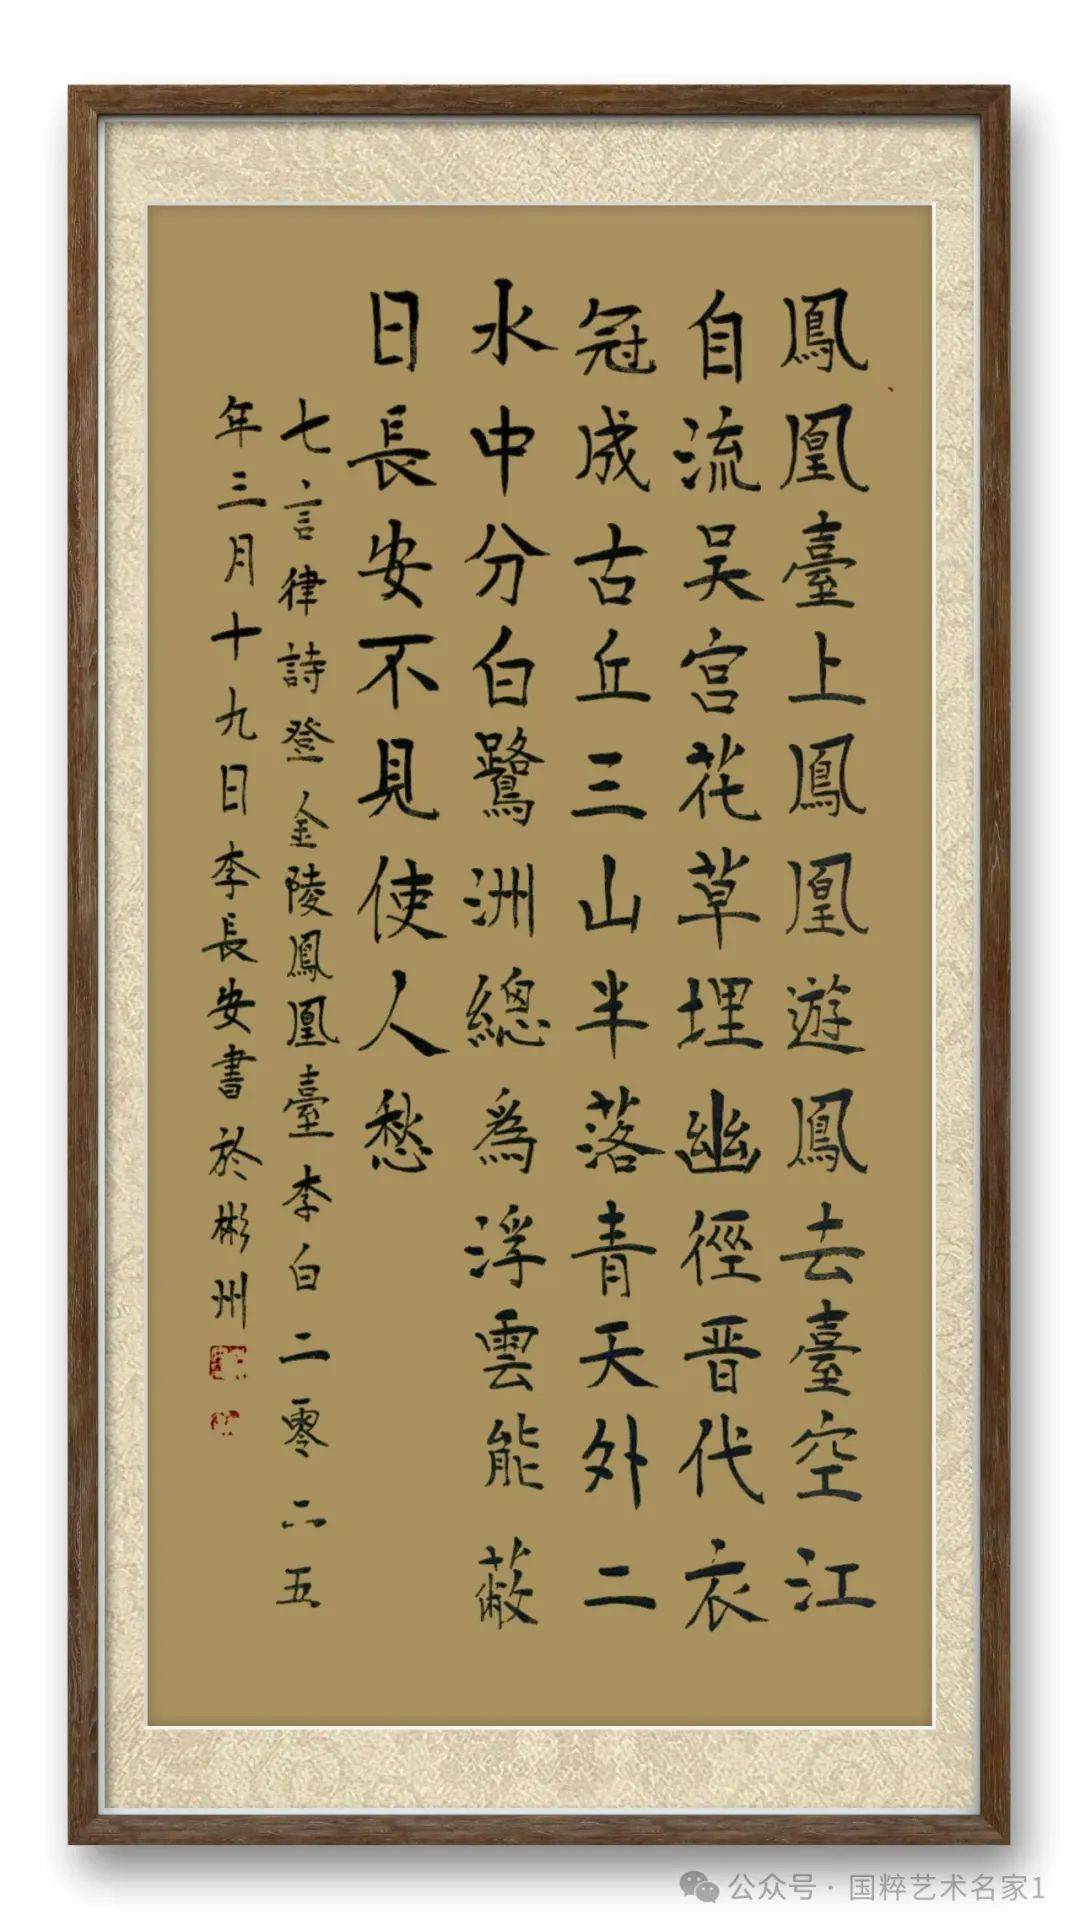 鳳凰臺上鳳凰遊鳳去臺空江
自流吴宫花草埋幽徑晋代衣
冠成古丘三山半落青天外二
水中分白鷺洲總為浮雲能蔽
日長安不見使人愁
七言律詩登金陵鳳凰臺李白二零二五
年三月十九日李長安書於彬州
公众号·国粹艺术名家1